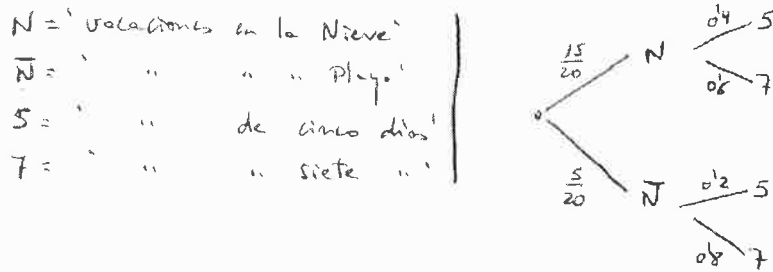 N = ' vacaciones en la Nieve'
N̅ = ' " " " Playa'
5 = ' " de cinco días'
7 = ' " " siete " '
15/20 N 0'4 5
0'6 7
5/20 N̅ 0'2 5
0'8 7